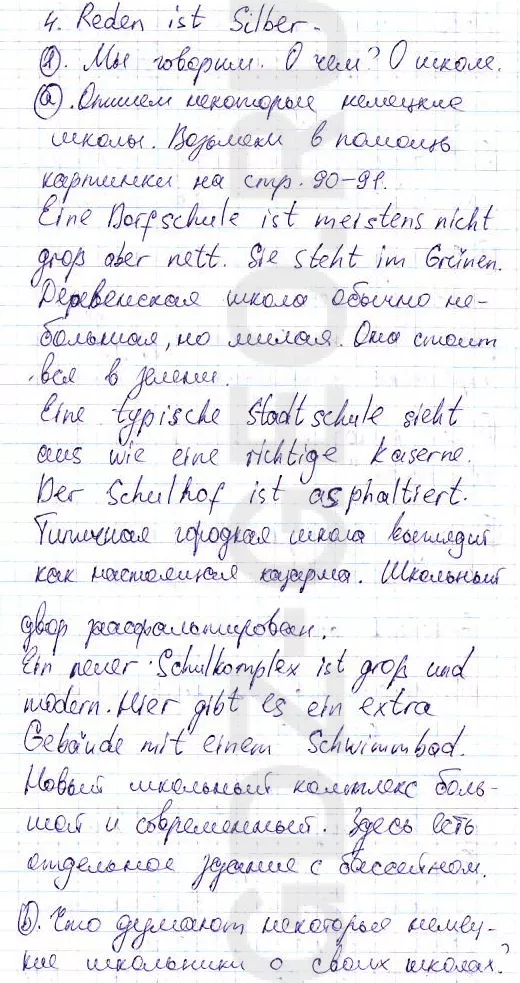 4. Reden ist Silber.
① Мы говорим. О чем? О школе.
ⓐ. Опишем некоторые немецкие
школы. Возьмем в помощь
картинки на стр. 90-91.
Eine Dorfschule ist meistens nicht
groß aber nett. Sie steht im Grünen.
Деревенская школа обычно не-
большая, но милая. Она стоит
вся в зелени.
Eine typische Stadtschule sieht
aus wie eine richtige Kaserne.
Der Schulhof ist asphaltiert.
Типичная городкая школа выглядит
как настоящая казарма. Школьный
двор расфальтирован.
Ein neuer Schulkomplex ist groß und
modern. Hier gibt es ein extra
Gebäude mit einem Schwimmbad.
Новый школьный комплекс боль-
шой и современный. Здесь есть
отдельное здание с бассейном.
ⓑ. Что думают некоторые немец-
кие школьники о своих школах?
GDZ-GEO.RU